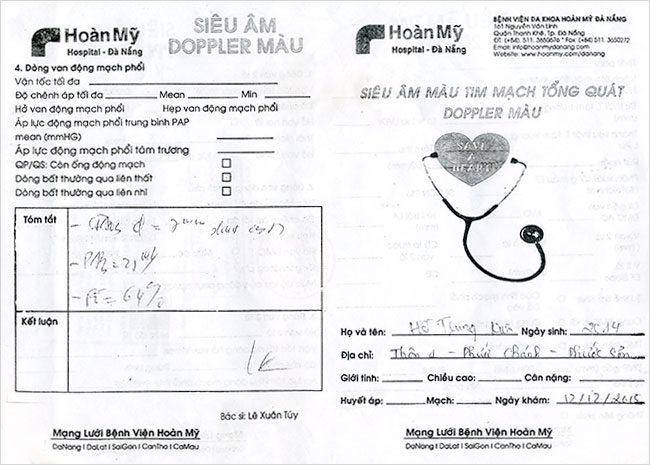 Hoàn Mỹ
Hospital - Đà Nẵng
SIÊU ÂM
DOPPLER MÀU
4. Dòng van động mạch phổi
Vận tốc tối đa
Độ chênh áp tối đa Mean Min
Hở van động mạch phổi Hẹp van động mạch phổi
Áp lực động mạch phổi trung bình PAP
mean (mmHG)
Áp lực động mạch phổi tâm trương
QP/QS: Còn ống động mạch
Dòng bất thường qua liên thất
Dòng bất thường qua liên nhĩ
Tóm tắt
- PAPs = 25
- EF = 64%
Kết luận
Bác sĩ: Lê Xuân Túy
Mạng Lưới Bệnh Viện Hoàn Mỹ
DaNang | DaLat | SaiGon | CanTho | CaMau
Hoàn Mỹ
Hospital - Đà Nẵng
BỆNH VIỆN ĐA KHOA HOÀN MỸ ĐÀ NẴNG
161 Nguyễn Văn Linh
Quận Thanh Khê, Tp. Đà Nẵng
ĐT: (+84). 511. 3650676 * Fax: (+84). 511. 3650272
Email: info@hoanmydanang.com
Website: www.hoanmy.com/danang
SIÊU ÂM MÀU TIM MẠCH TỔNG QUÁT
DOPPLER MÀU
SAVE
A
HEART
Họ và tên: Hồ Trung Ngày sinh: 2014
Địa chỉ: Thôn 1 - Phước Chánh - Phước Sơn
Giới tính: Chiều cao: Cân nặng:
Huyết áp: Mạch: Ngày khám: 12/12/2015
Mạng Lưới Bệnh Viện Hoàn Mỹ
DaNang | DaLat | SaiGon | CanTho | CaMau